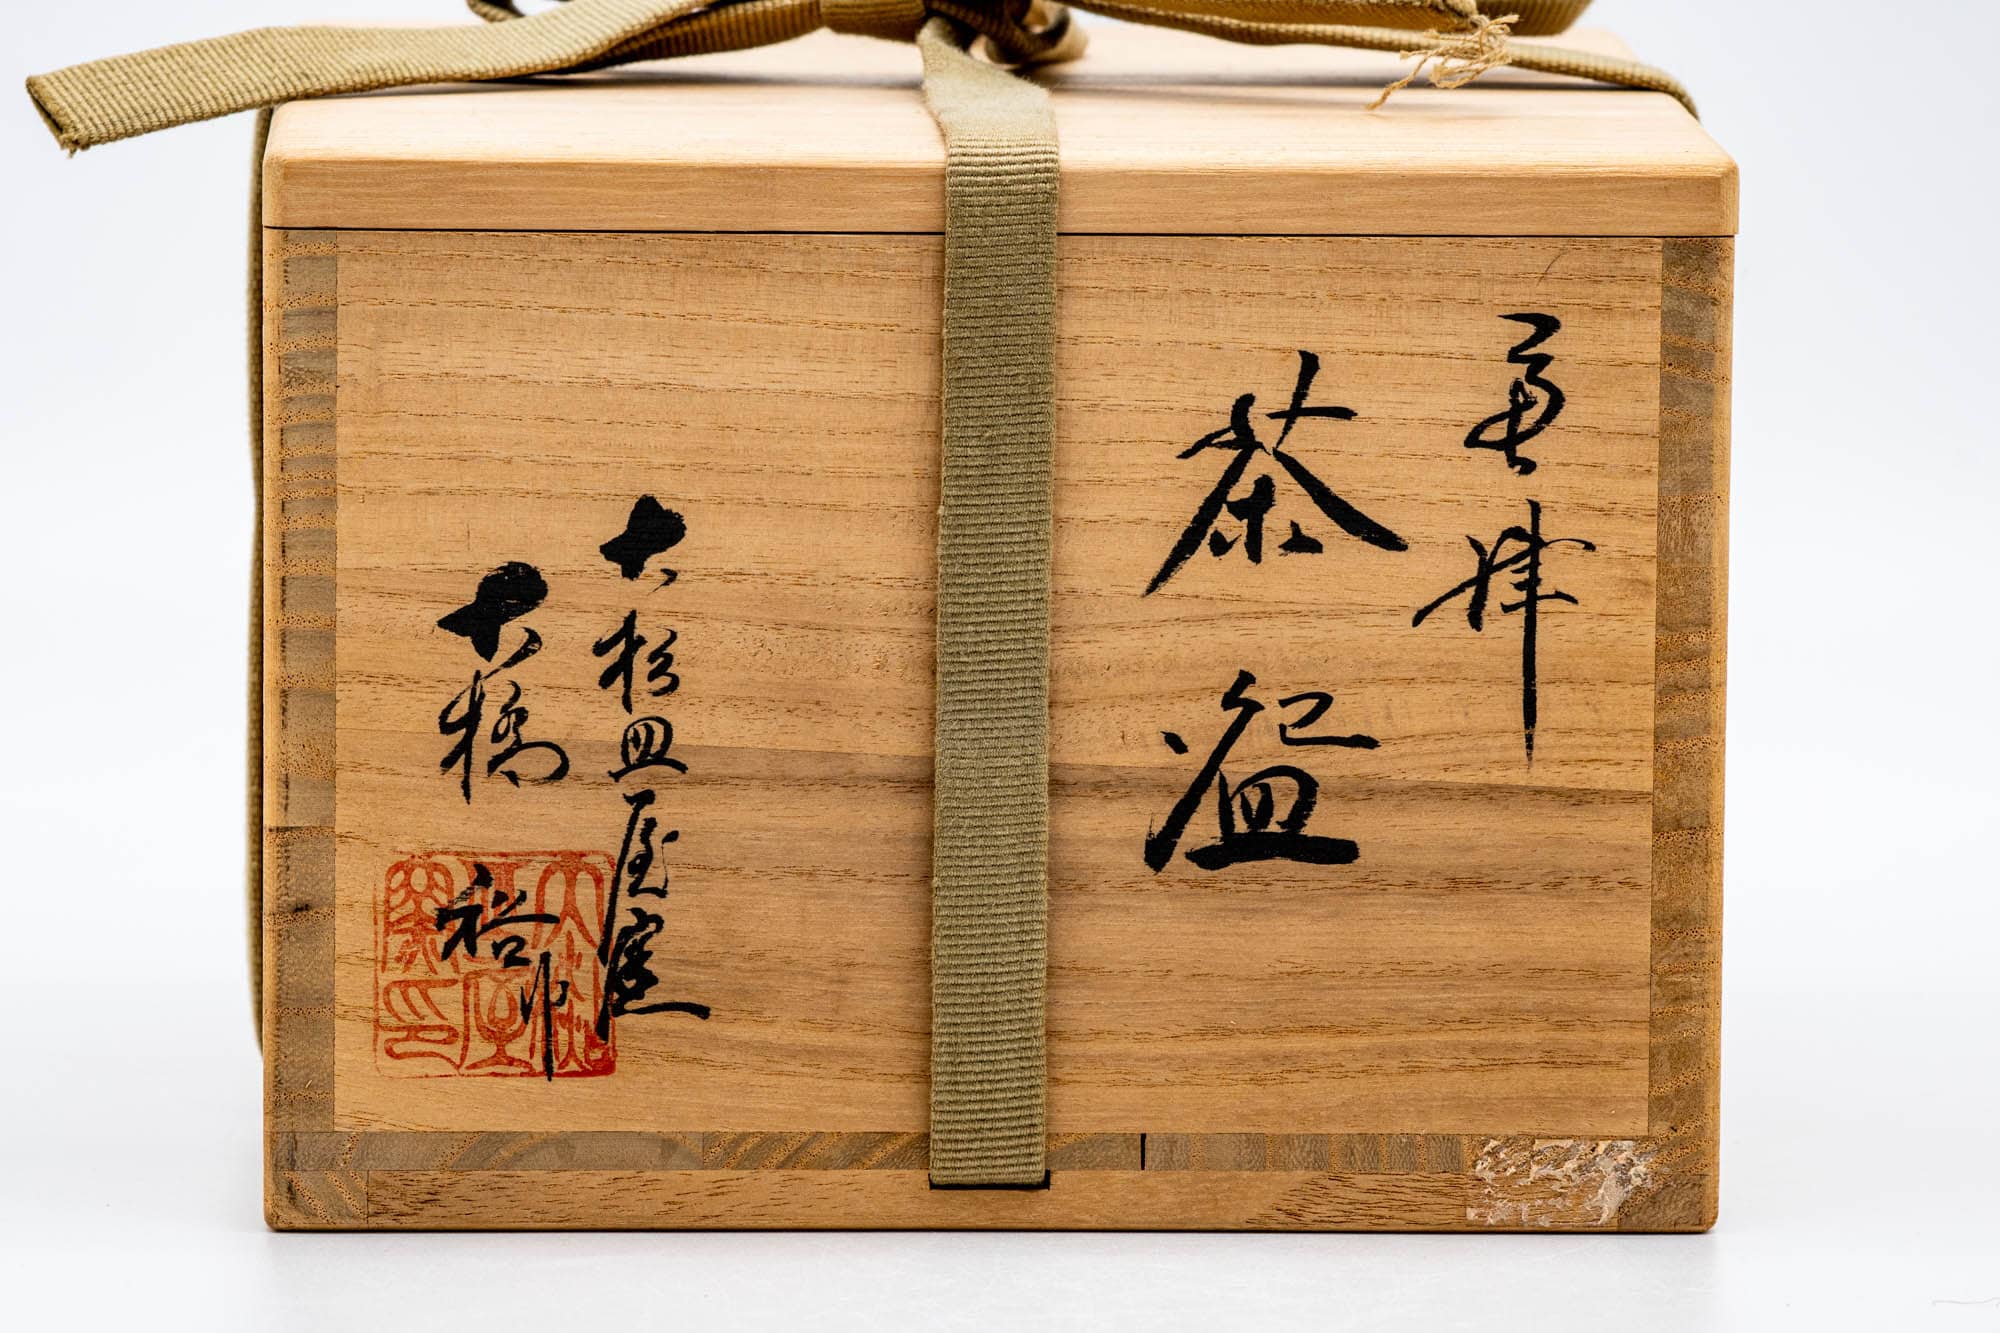 唐津
茶盌
大杉皿屋窯
大橋裕